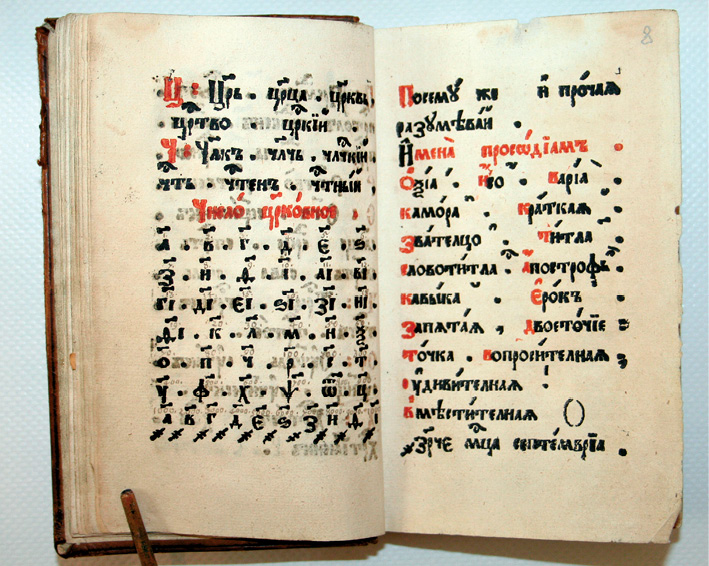 Ц: Цр҃ь . цр҃ца . цр҃квь .
цр҃тво . цр҃кїи .
Ч: Чл҃къ . чл҃чь . чл҃чкїи
чть . чтенъ . чтныи
Число̀ цр҃ко́вное
а҃ . в҃ . г҃ . д҃ . є҃ . ѕ҃
з҃ . и҃ . ѳ҃ . і҃ . аі҃ . ві҃
гі҃ . ді҃ . єі҃ . ѕі҃ . зі҃ . иі҃
к҃ . л҃ . м҃ . н҃ .
о҃ . п҃ . ч҃ . р҃ . с҃ . т҃
у҃ . ф҃ . х҃ . ѱ҃ . ѿ҃ . ц҃
҂а ҂в ҂г ҂д ҂є ҂ѕ ҂з ҂и
8
Посему́ же и҆ про́чаѧ
разꙋмѣва́й .
И҆мена̀ просѡді́амъ .
О҆ѯі́а ́ . И҆́со . варі́а ̀ .
камо́ра . кра́ткаѧ .
зва́телцо . ти́тла .
словоти́тла . а҆постро́фъ .
кавы́ка . є҆ро́къ .
запѧта́ѧ , двосто́чїе :
то́чка . вопроси́телнаѧ ;
ᲂу҆диви́телнаѧ !
вмѣсти́телнаѧ ()
мц҃а септе́мврїа .